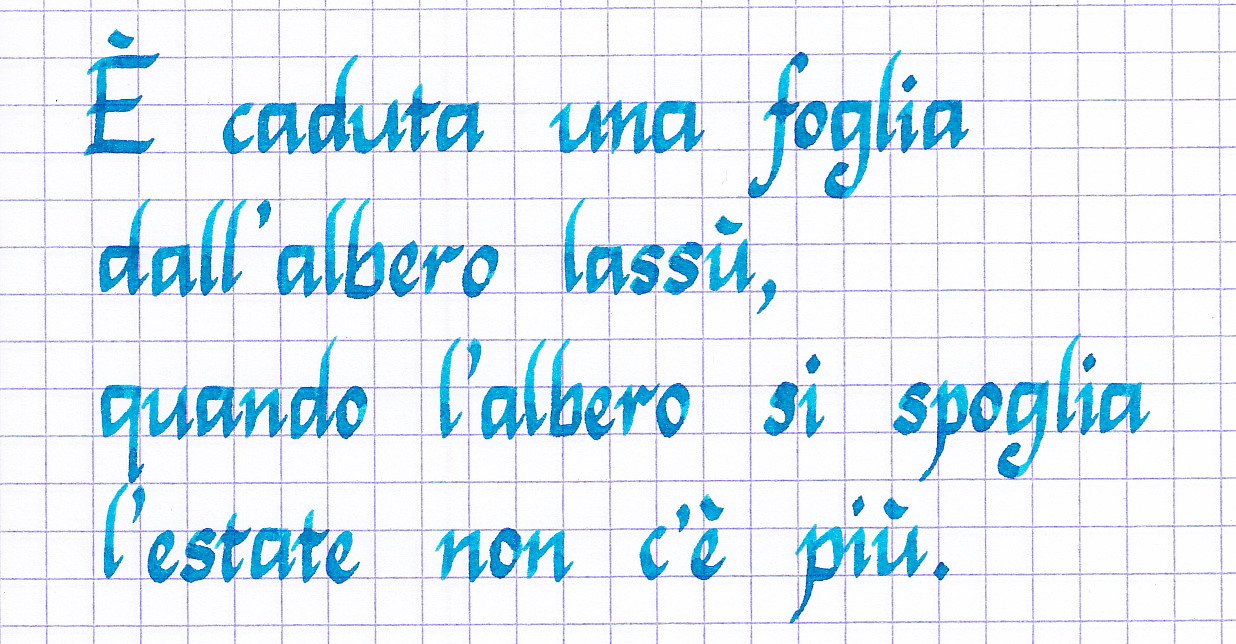 È caduta una foglia
dall'albero lassù,
quando l'albero si spoglia
l'estate non c'è più.